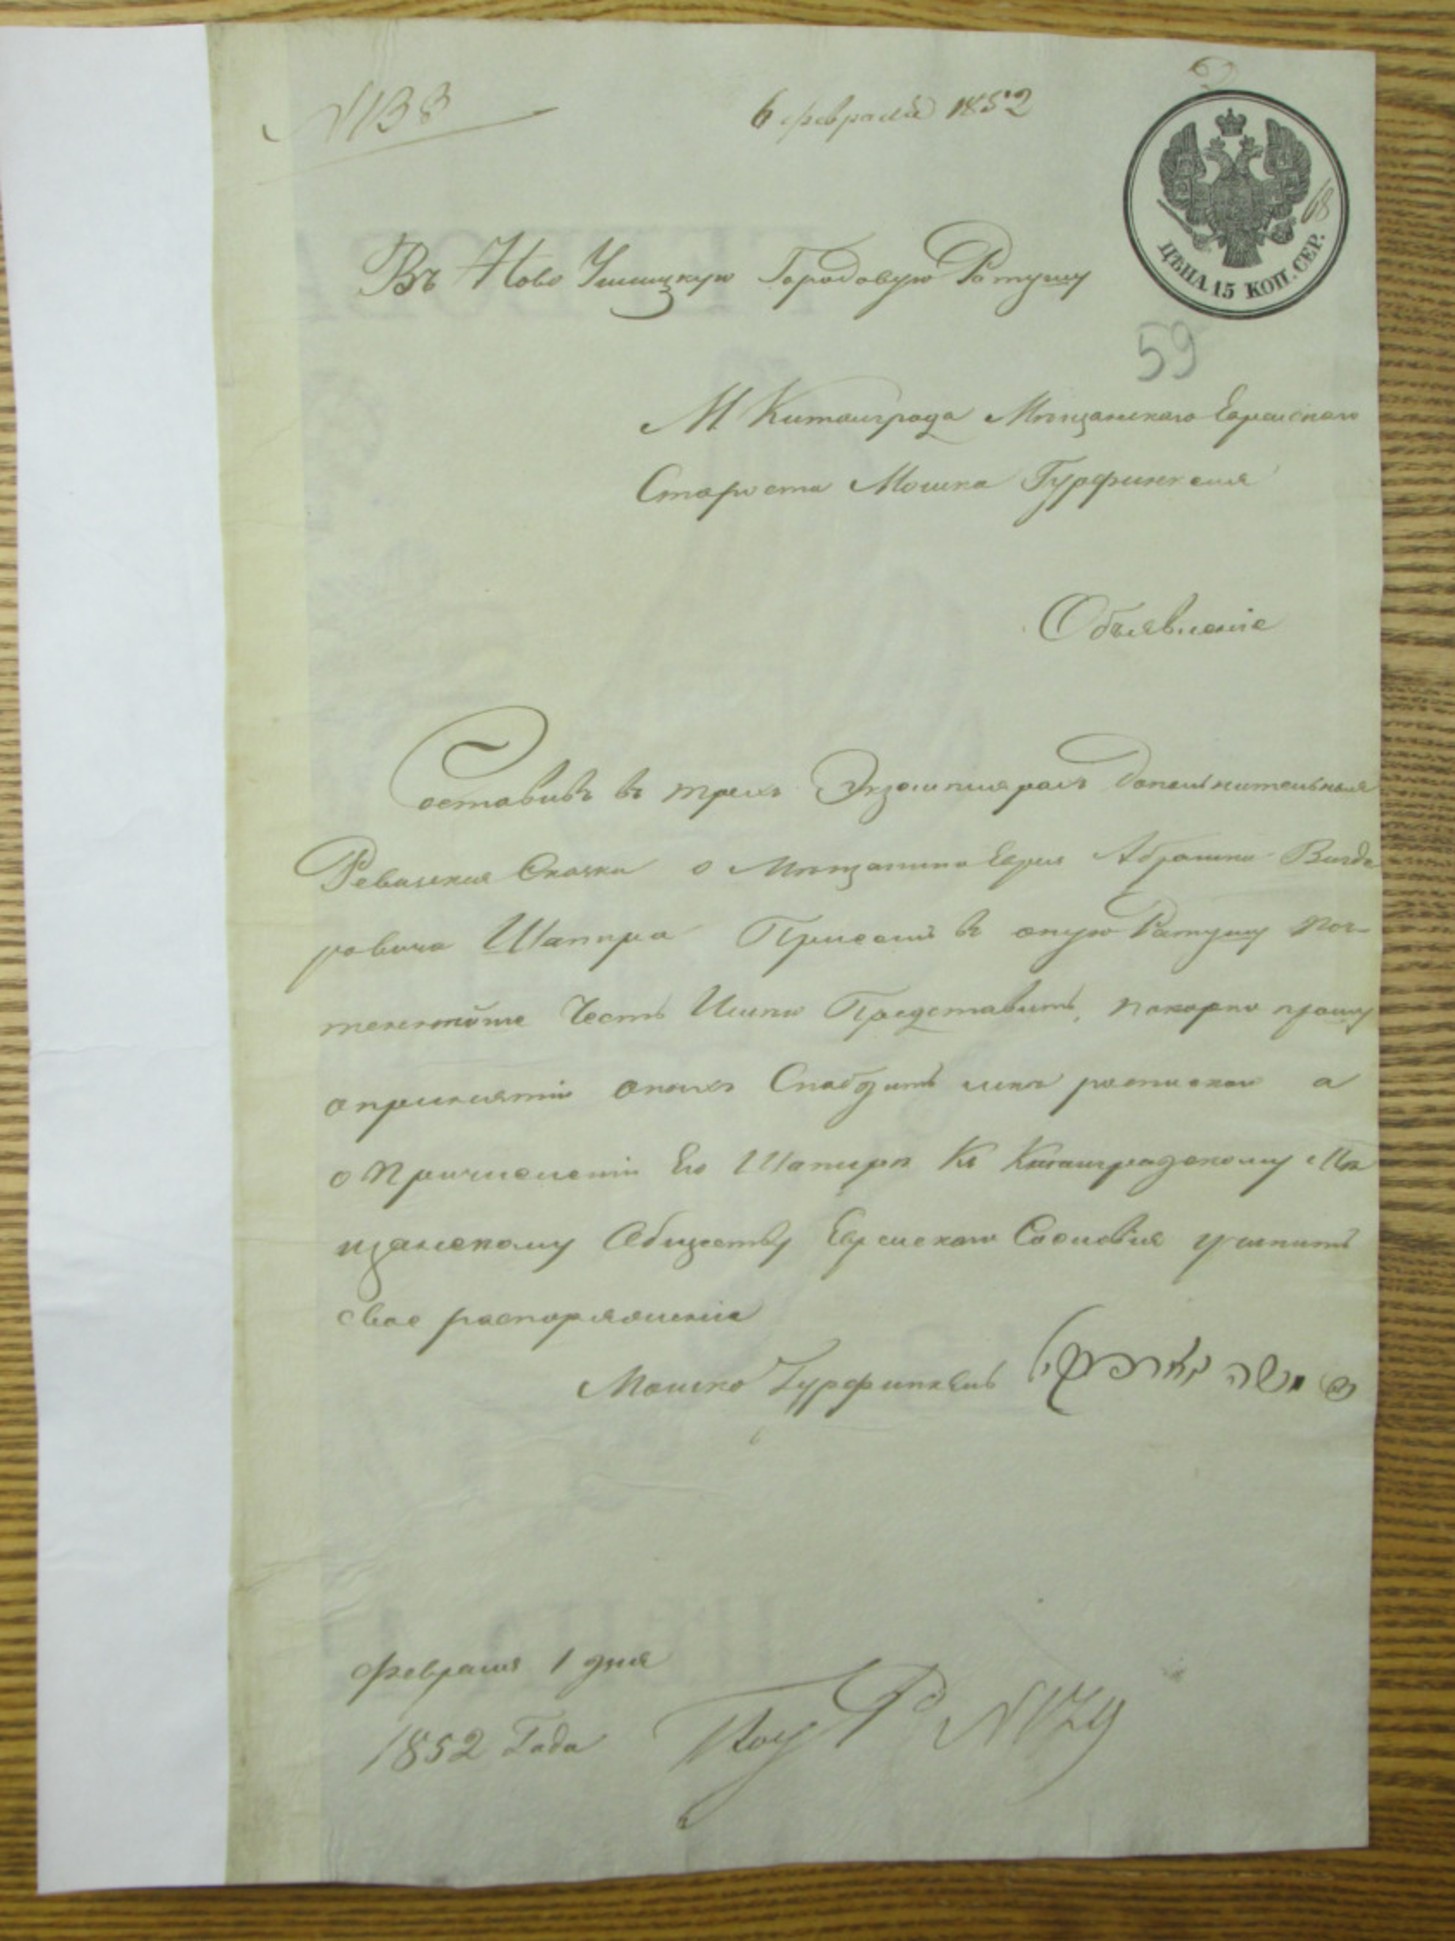 N 138
6 февраля 1852
68
ЦѢНА 15 КОП. СЕР.
59
Въ Ново Ушицкую Городовую Ратушу
М Китайгрода Мѣщанского Еврейского
Старосты Мошка Гурфинкеля
Объявленіе
Составивъ въ трехъ Экземплярахъ дополнительныя
Ревизския Скаски о Мѣщанине Еврее Абрашки Вигдо
ровича Шапира Присемъ въ оную Ратушу поч-
теннейше Честь Имею Представить, покорно прошу
опринятіи оныхъ Снабдить мене роспискою а
о Причисленіи Его Шапира Къ Китайградскому Мѣ
щанскому Обществу Еврейского Сословия учинить
свое распоряжение
Мошко Гурфинкель משה גורפינקיל
февраля 1 дня
1852 Года
N 179